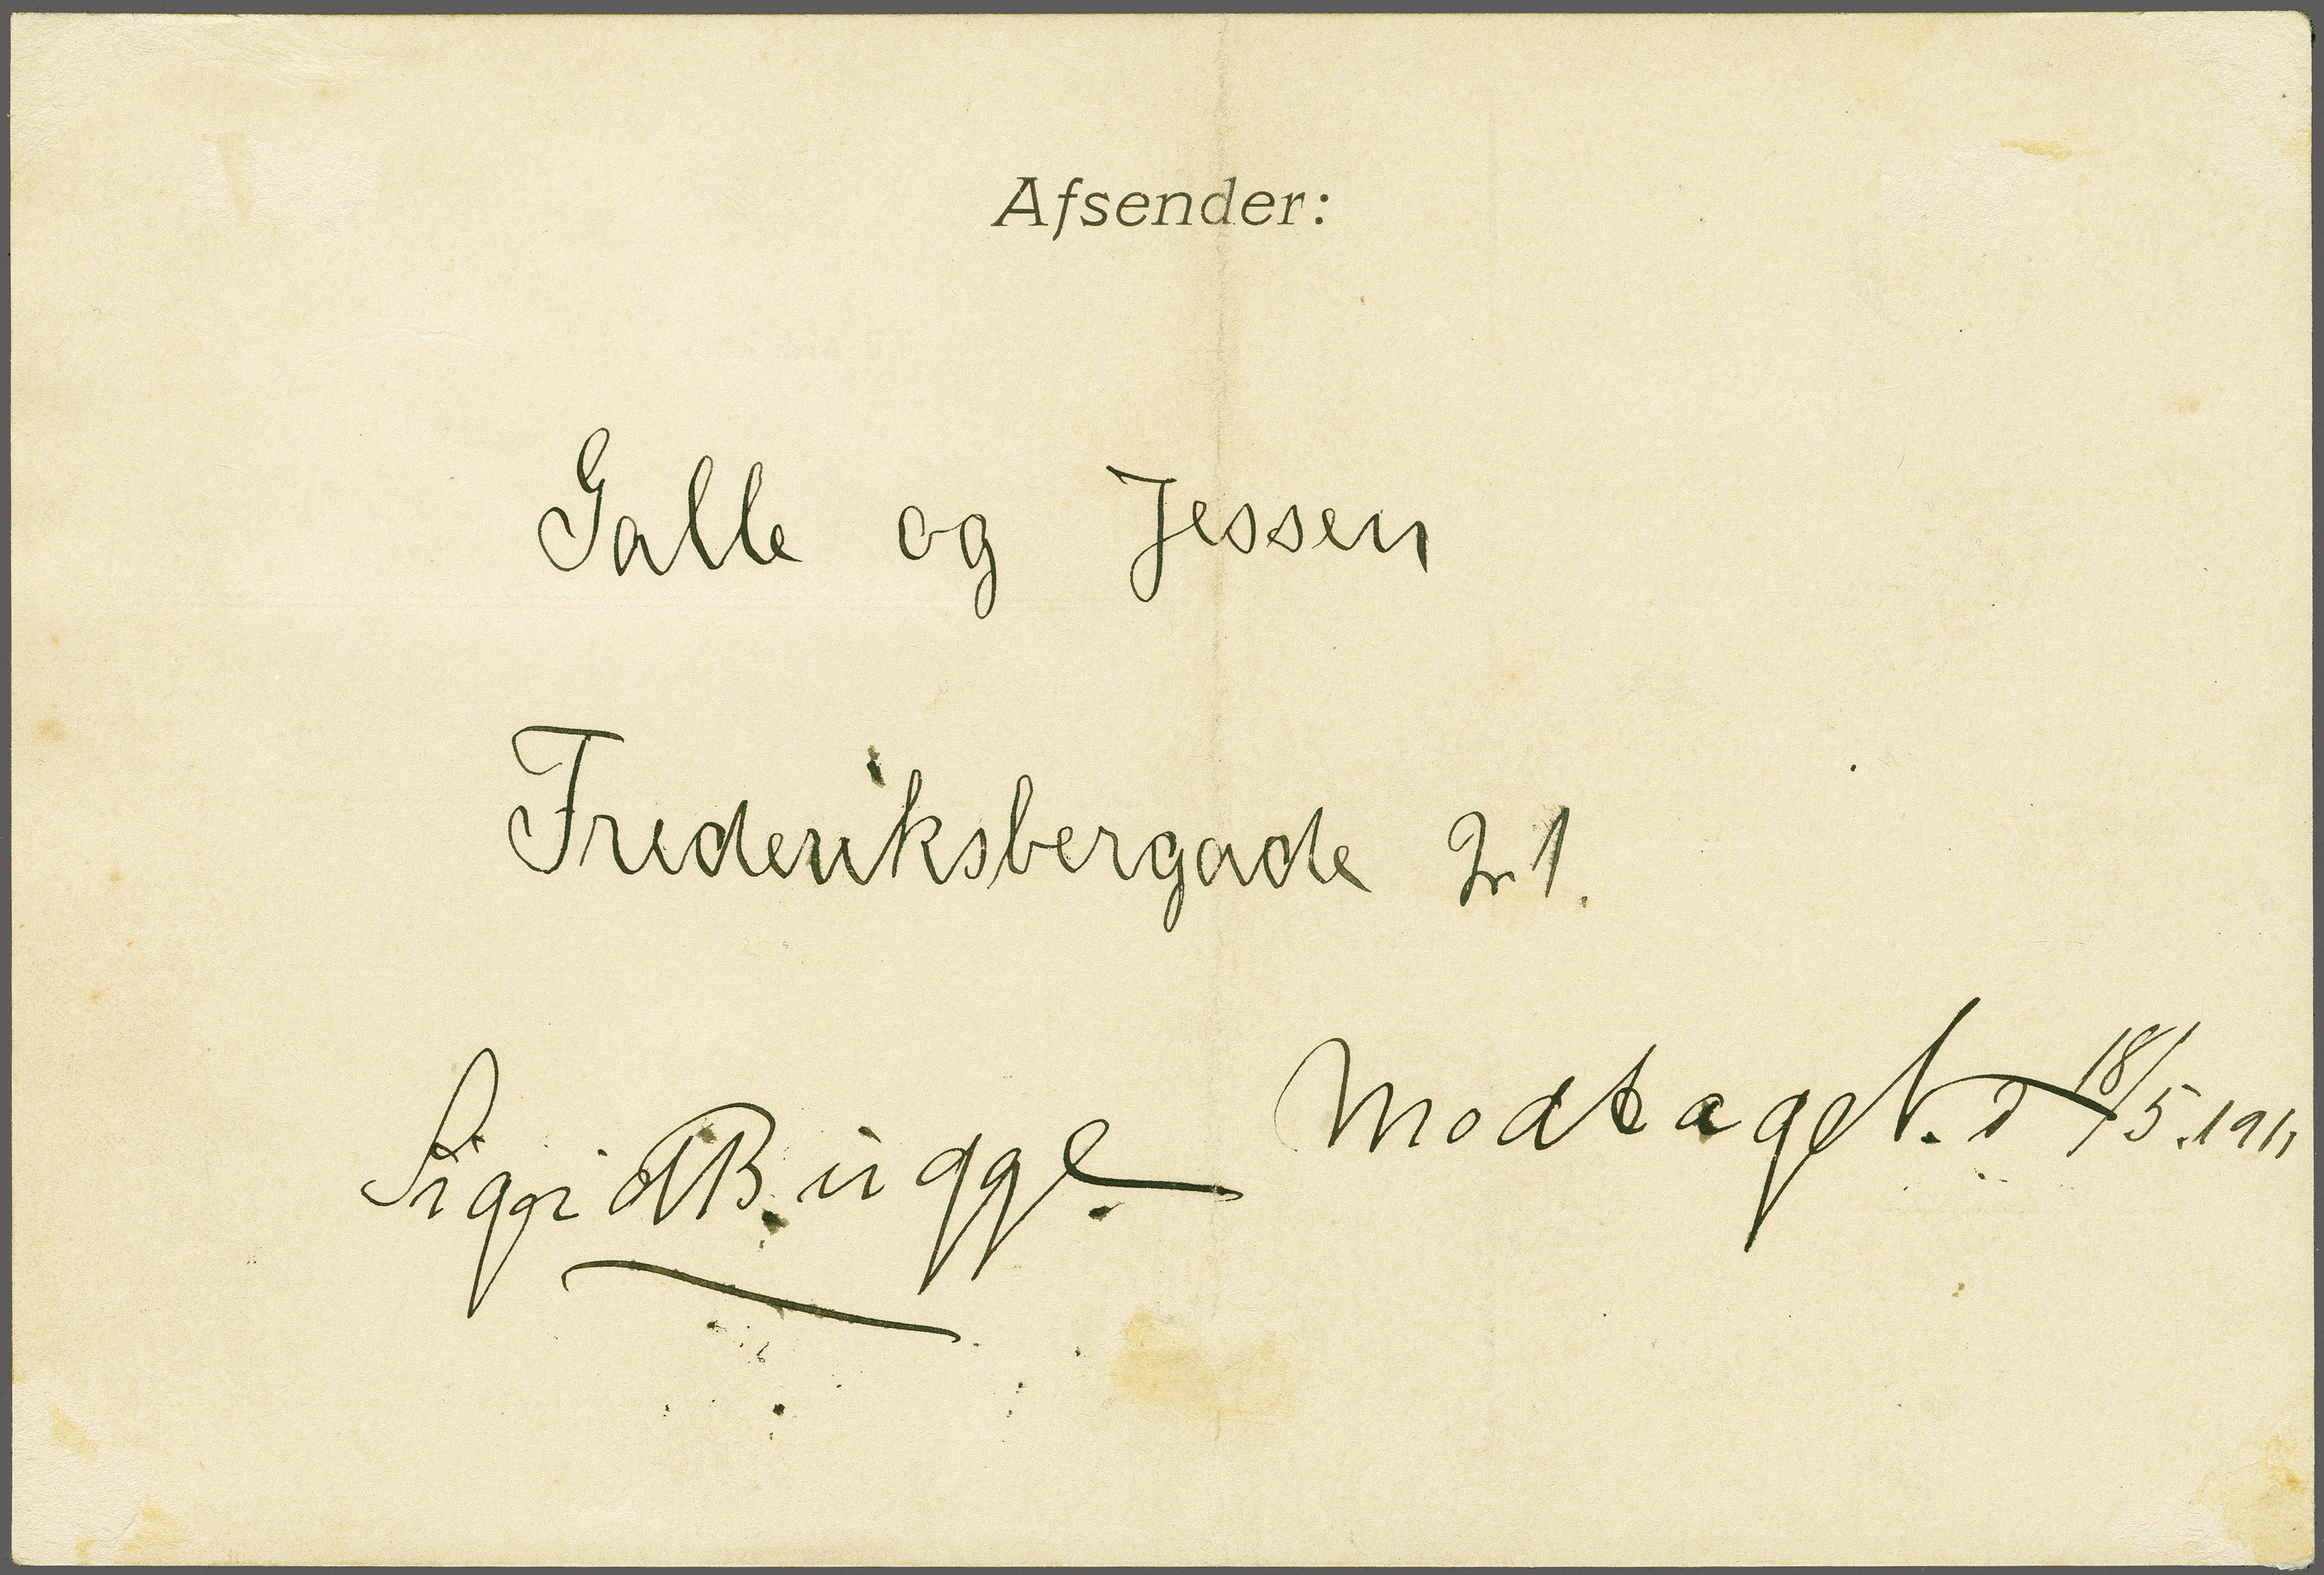 Afsender:
Galle og Jessen
Frederiksbergade 21.
Sigrid Bugge Modtaget. d 18/5.1911